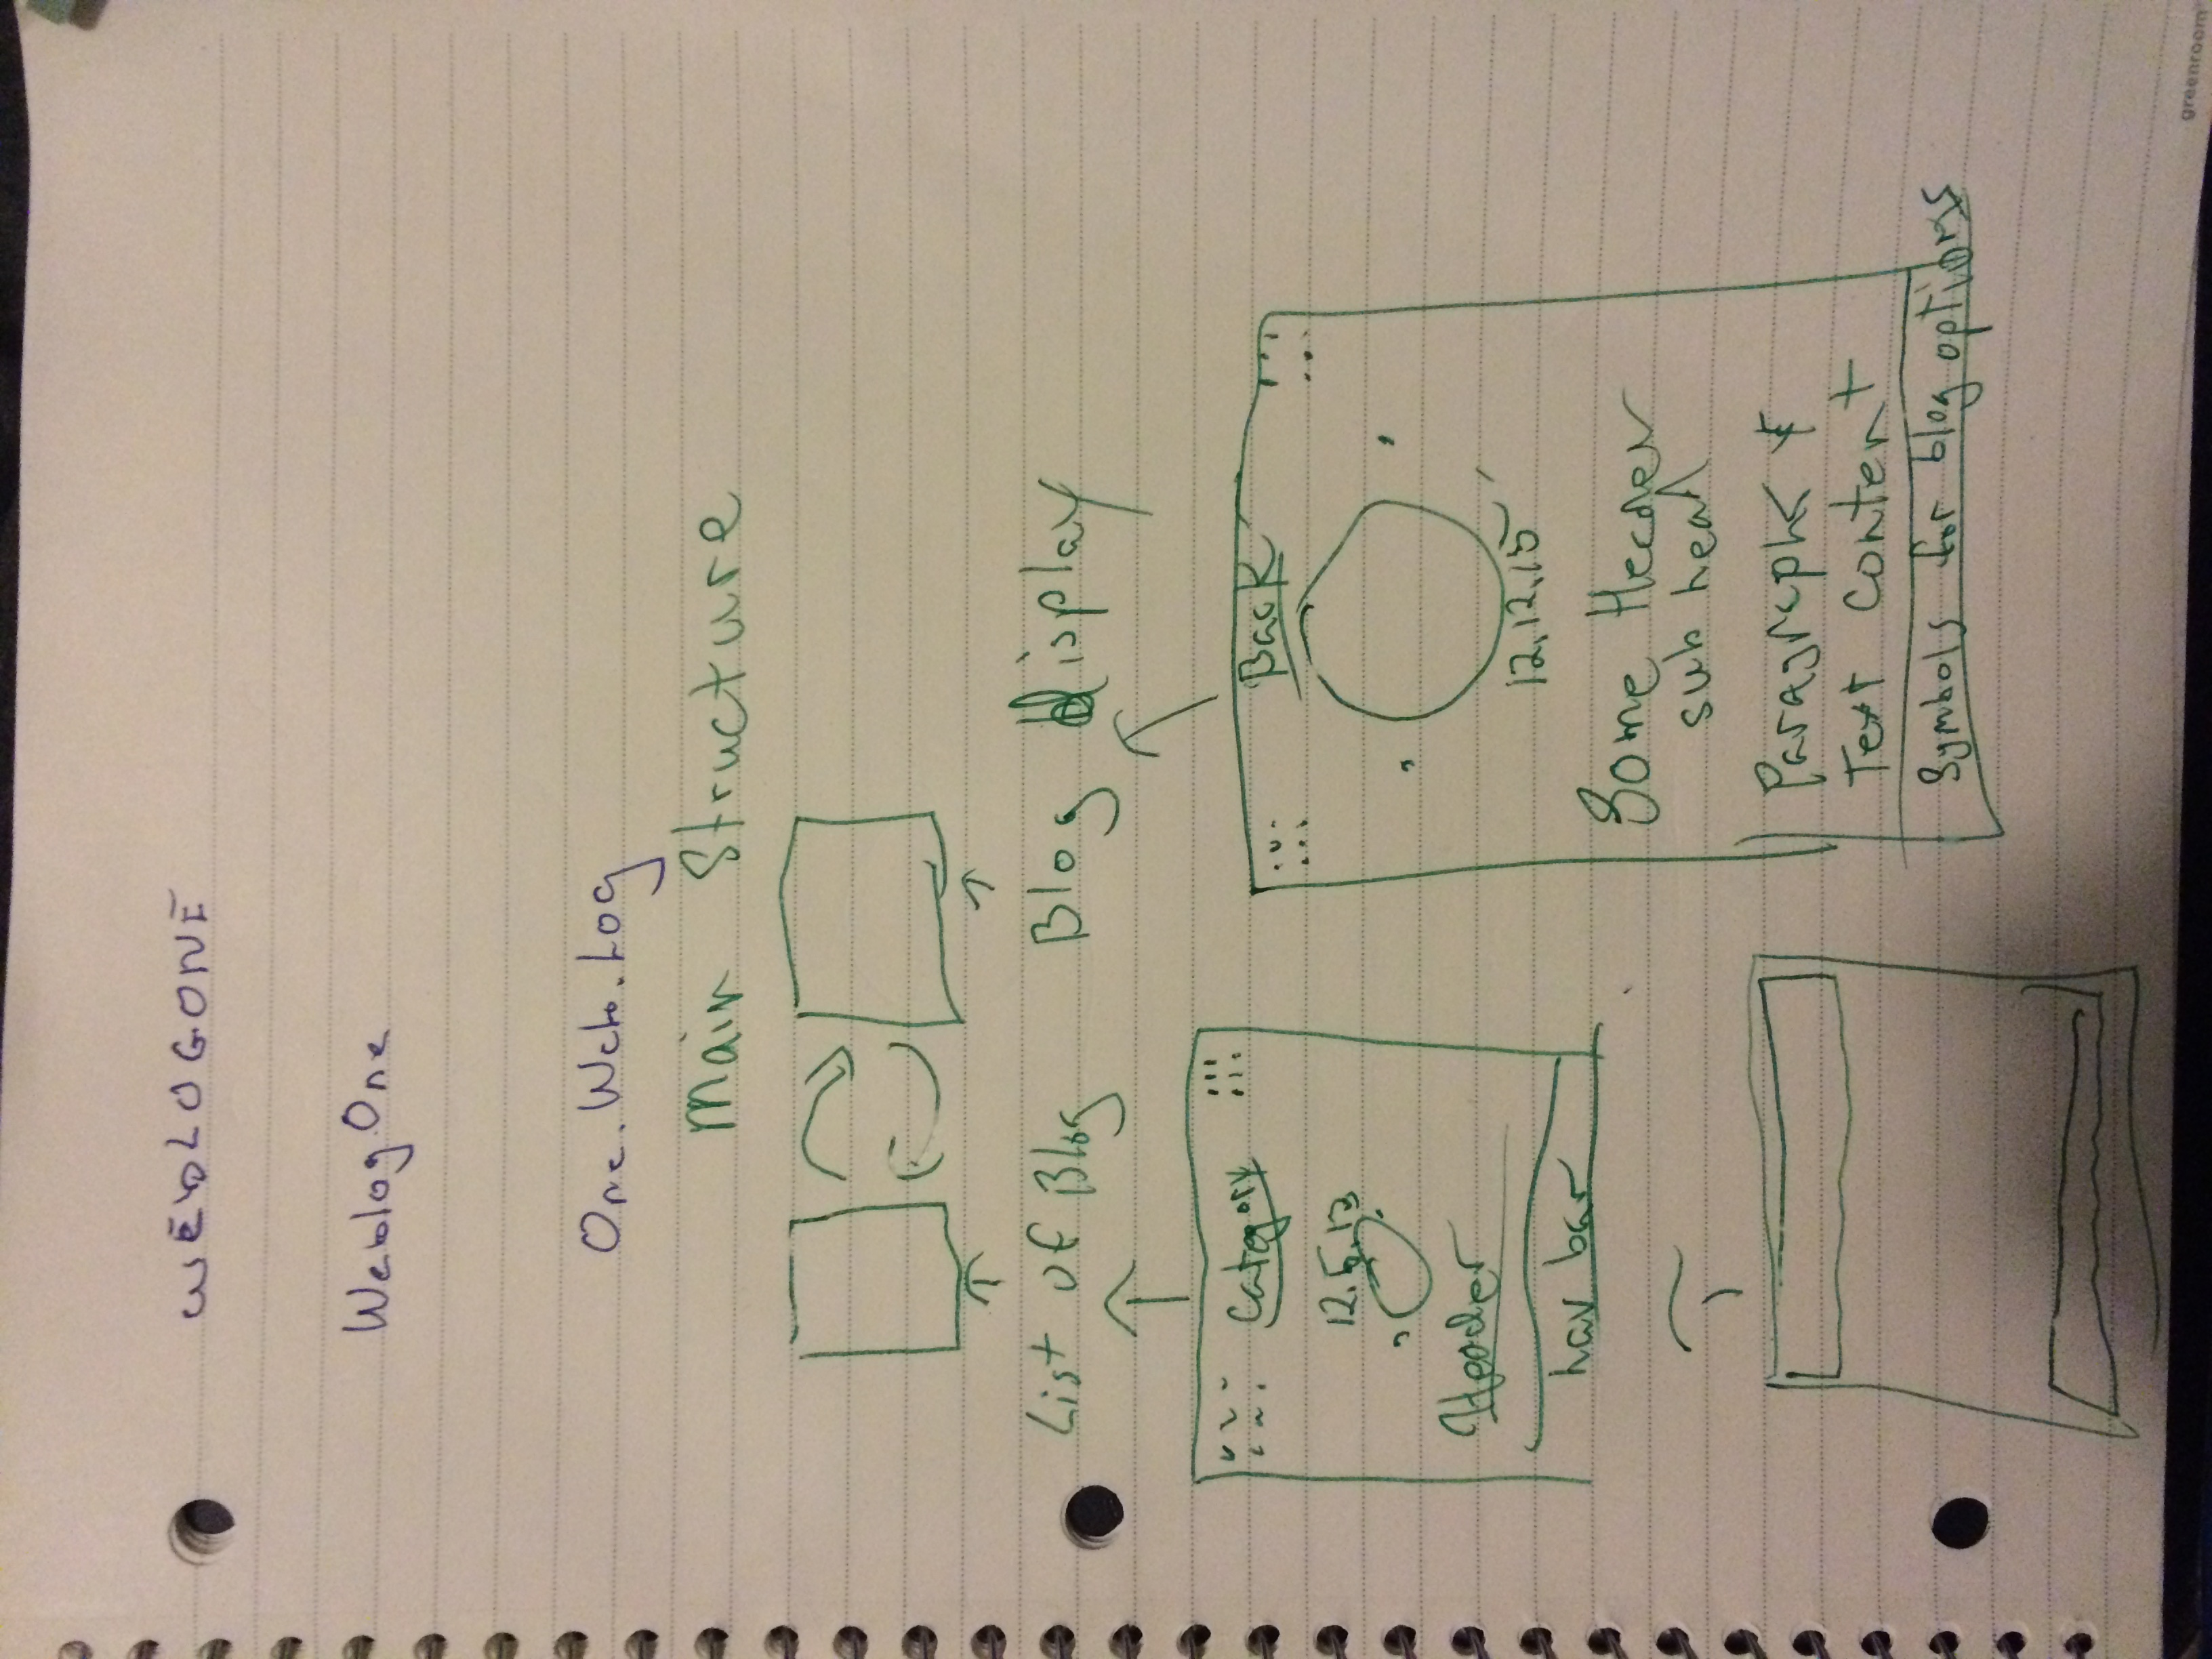 WEbLOGONE
Weblog One
One.Web.Log
Main Structure
List of Blog
Blog display
Category
12.5.13
Header
nav bar
Back
12.12.15
Some Header
sub head
Paragraphs &
Text Content
Symbols for blog options
greenroom